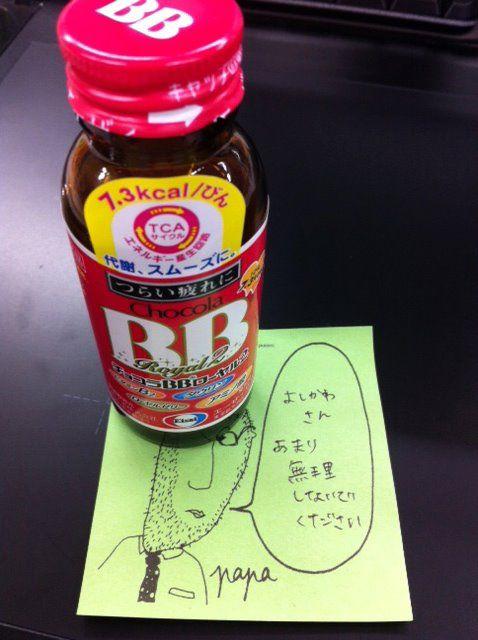 BB
キャップ
7.3kcal/びん
TCA
サイクル
エネルギー産生回路
代謝、スムーズに。
つらい疲れに
Chocola
BB
Royal2
チョコラBBローヤル2
タウリン
Eisai
よしかわ
さん
あまり
無理
しないで
ください
papa